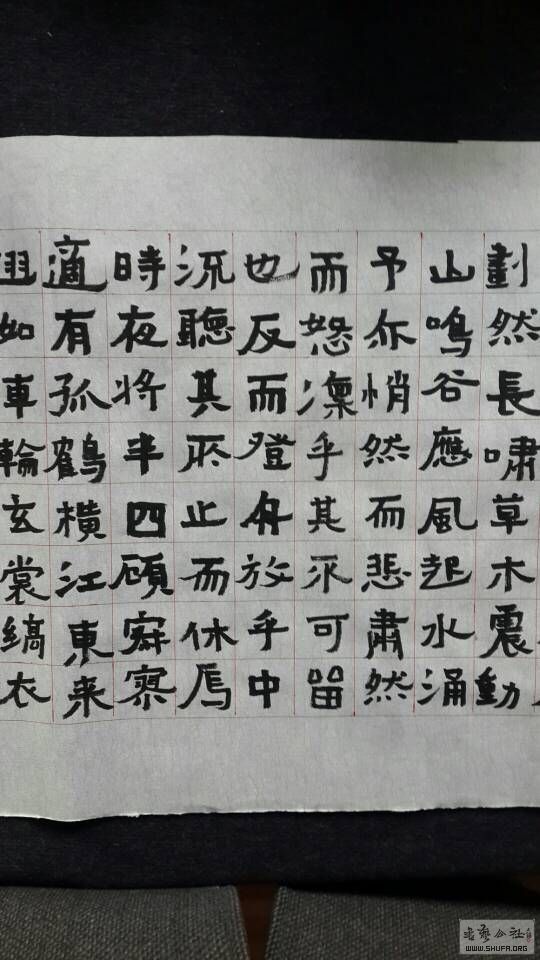 劃然長嘯草木震動
山鳴谷應風起水涌
予亦悄然而悲肅然
而恐凜乎其不可留
也反而登舟放乎中
流聽其所止而休焉
時夜将半四顧寂寥
適有孤鶴横江東来
翅如車輪玄裳縞衣
书艺公社
WWW.SHUFA.ORG